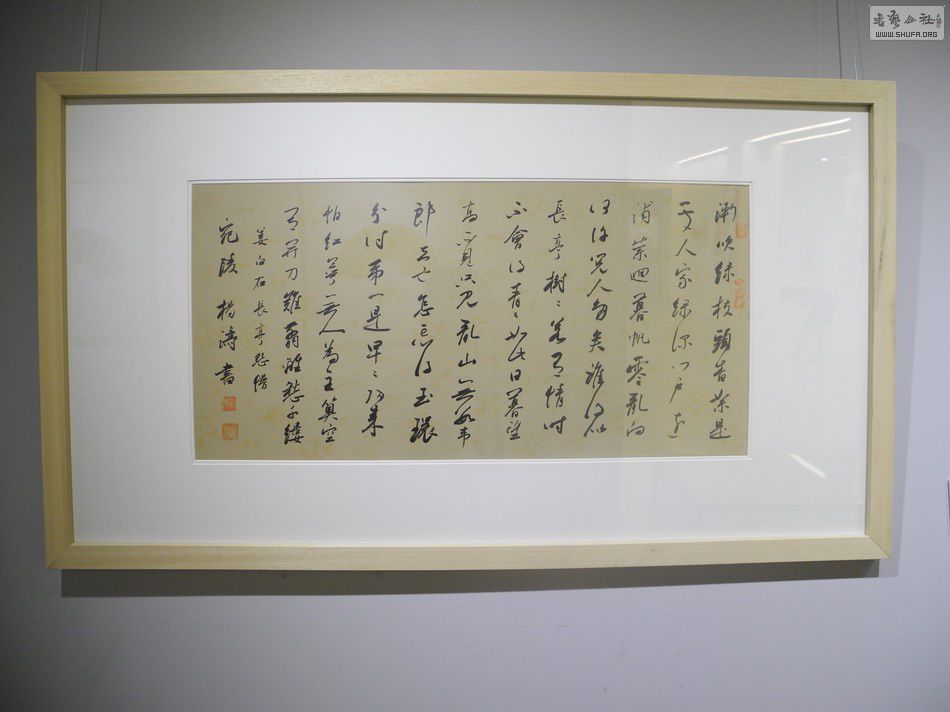 漸吹緑枝頭香絮是
處人家緑深門戶遠
浦縈迴暮帆零亂向
何許閱人多矣誰得似
長亭樹〻若有情時
不會得青〻如此日暮望
高不見只見亂山無數韋
郎去也怎忘得玉環
分付第一是早〻歸來
怕紅萼無人為主算空
有并刀難翦離愁千縷
姜白石長亭怨慢
宛陵楊濤書
書藝公社
WWW.SHUFA.ORG